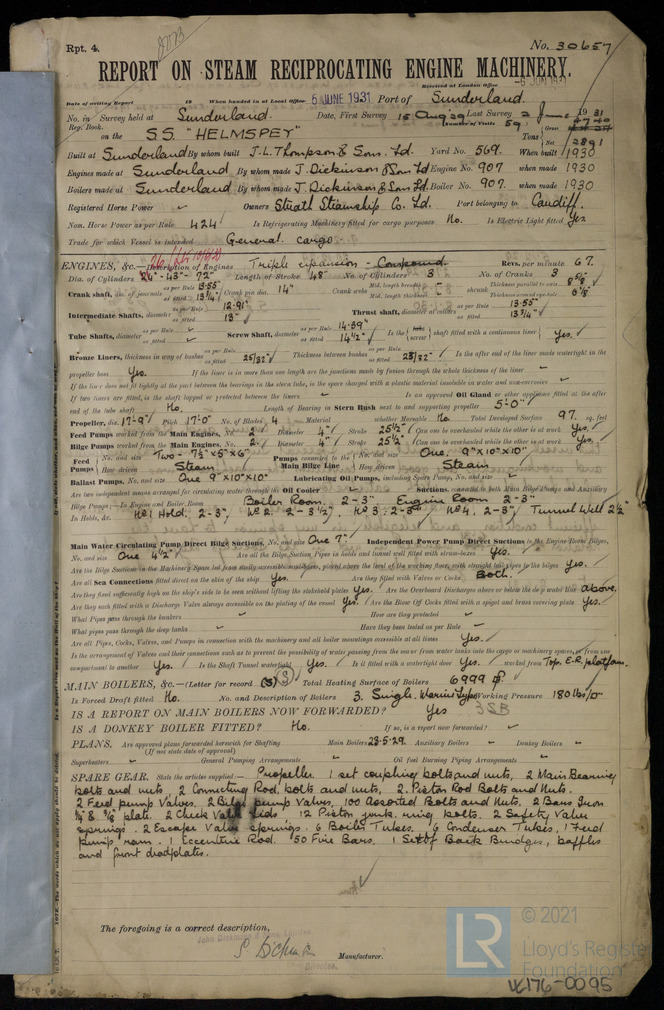 Rpt. 4.
No. 30657
REPORT ON STEAM RECIPROCATING ENGINE MACHINERY.
Received at London Office
Date of writing Report 19 When handed in at Local Office 5 JUNE 1931 Port of Sunderland.
No. in Survey held at Sunderland. Date, First Survey 15 Aug 29 Last Survey 2 June 1931
Reg. Book. Number of Visits 59
on the S.S. "HELMSPEY" Tons Gross
Net 2891
Built at Sunderland By whom built J.L. Thompson & Sons. Ld. Yard No. 569. When built 1930
Engines made at Sunderland By whom made J. Dickinson & Sons Ld Engine No. 907 when made 1930
Boilers made at Sunderland By whom made J. Dickinson & Sons Ld Boiler No. 907. when made 1930
Registered Horse Power Owners Strath Steamship Co. Ld. Port belonging to Cardiff.
Nom. Horse Power as per Rule 424 Is Refrigerating Machinery fitted for cargo purposes No. Is Electric Light fitted Yes
Trade for which Vessel is intended General cargo
ENGINES, &c.—Description of Engines Triple expansion - Compound Revs. per minute 67.
Dia. of Cylinders 26"-43"-72" Length of Stroke 48" No. of Cylinders 3 No. of Cranks 3
Crank shaft, dia. of journals as per Rule 13.55" as fitted 13¾" Crank pin dia. 14" Crank webs Mid. length breadth Mid. length thickness shrunk Thickness parallel to axis 8⅝" Thickness around eye-hole
Intermediate Shafts, diameter as per Rule 12.91" as fitted 13" Thrust shaft, diameter at collars as per Rule 13.55" as fitted 13¾"
Tube Shafts, diameter as per Rule as fitted Screw Shaft, diameter as per Rule 14.39" as fitted 14½" Is the tube screw shaft fitted with a continuous liner Yes.
Bronze Liners, thickness in way of bushes as per Rule as fitted 25/32" Thickness between bushes as per Rule as fitted 23/32" Is the after end of the liner made watertight in the
propeller boss Yes. If the liner is in more than one length are the junctions made by fusion through the whole thickness of the liner
If the liner does not fit tightly at the part between the bearings in the stern tube, is the space charged with a plastic material insoluble in water and non-corrosive
If two liners are fitted, is the shaft lapped or protected between the liners Is an approved Oil Gland or other appliance fitted at the after
end of the tube shaft No. Length of Bearing in Stern Bush next to and supporting propeller 5'-0"
Propeller, dia. 17'-9" Pitch 17'-0" No. of Blades 4 Material whether Moveable No Total Developed Surface 97. sq. feet
Feed Pumps worked from the Main Engines, No. 2 Diameter 4" Stroke 25½" Can one be overhauled while the other is at work Yes.
Bilge Pumps worked from the Main Engines, No. 2. Diameter 4" Stroke 25½" Can one be overhauled while the other is at work Yes.
Feed Pumps No. and size Two - 7½" x 5" x 6" Pumps connected to the Main Bilge Line No. and size One, 9" x 10" x 10"
How driven Steam How driven Steam
Ballast Pumps, No. and size One 9" x 10" x 10" Lubricating Oil Pumps, including Spare Pump, No. and size
Are two independent means arranged for circulating water through the Oil Cooler Suctions, connected to both Main Bilge Pumps and Auxiliary
Bilge Pumps;—In Engine and Boiler Room Boiler Room. 2-3" Engine Room 2-3"
In Holds, &c. No 1 Hold. 2-3", No 2. 2-3½", No 3. 2-3" No 4. 2-3" Tunnel Well 2½"
Main Water Circulating Pump Direct Bilge Suctions, No. and size One 7" Independent Power Pump Direct Suctions to the Engine Room Bilges,
No. and size One 4½" Are all the Bilge Suction Pipes in holds and tunnel well fitted with strum-boxes Yes.
Are the Bilge Suctions in the Machinery Space led from easily accessible mud-boxes, placed above the level of the working floor, with straight tail pipes to the bilges Yes.
Are all Sea Connections fitted direct on the skin of the ship Yes. Are they fitted with Valves or Cocks Both.
Are they fixed sufficiently high on the ship's side to be seen without lifting the stokehold plates Yes. Are the Overboard Discharges above or below the deep water line above.
Are they each fitted with a Discharge Valve always accessible on the plating of the vessel Yes. Are the Blow Off Cocks fitted with a spigot and brass covering plate Yes.
What Pipes pass through the bunkers How are they protected
What pipes pass through the deep tanks Have they been tested as per Rule
Are all Pipes, Cocks, Valves, and Pumps in connection with the machinery and all boiler mountings accessible at all times Yes.
Is the arrangement of Valves and their connections such as to prevent the possibility of water passing from the sea or from water tanks into the cargo or machinery spaces, or from one
compartment to another Yes. Is the Shaft Tunnel watertight Yes. Is it fitted with a watertight door Yes. worked from Top. E.R. platform.
MAIN BOILERS, &c.—(Letter for record (S)) Total Heating Surface of Boilers 6999
Is Forced Draft fitted No. No. and Description of Boilers 3. Single. Marine Type Working Pressure 180 lbs/□"
IS A REPORT ON MAIN BOILERS NOW FORWARDED? Yes 3SB
IS A DONKEY BOILER FITTED? No. If so, is a report now forwarded?
PLANS. Are approved plans forwarded herewith for Shafting Main Boilers 23-5-29. Auxiliary Boilers Donkey Boilers
(If not state date of approval)
Superheaters General Pumping Arrangements Oil fuel Burning Piping Arrangements
SPARE GEAR. State the articles supplied:— Propeller. 1 set coupling bolts and nuts, 2 Main Bearing
bolts and nuts, 2 Connecting Rod, bolts and nuts, 2. Piston Rod Bolts and Nuts.
2 Feed pump Valves, 2 Bilge pump Valves, 100 Assorted Bolts and Nuts, 2 Bars Iron
plate. 2 Check Valve Lids. 12 Piston junk ring bolts. 2 Safety Valve
springs. 2 Escape Valve Springs. 6 Boiler Tubes, 6 Condenser Tubes, 1 Feed
pump ram. 1 Eccentric Rod. 50 Fire Bars. 1 Set of Back Bridges, baffles
and front deadplates.
The foregoing is a correct description,
Manufacturer.
Director.
LR
© 2021
Lloyd's Register
Foundation
W176-0095